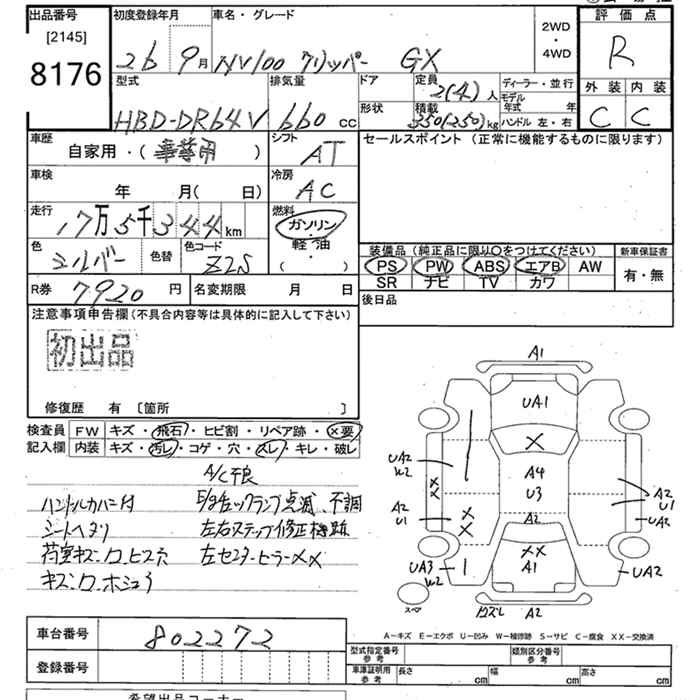 出品番号
[2145]
8176
初度登録年月
26 9月
車名・グレード
NV100 クリッパー GX
2WD
・
4WD
評価点
R
外装 内装
C C
型式
HBD-DR64V
排気量
660 cc
ドア
形状
定員
2(4)人
積載
350(250)kg
ディーラー・並行
モデル
年式 年
ハンドル 左・右
車歴
自家用・(事業用)
シフト
AT
セールスポイント (正常に機能するものに限ります)
車検
年 月( 日)
冷房
AC
走行
17万5千344km
燃料
ガソリン
軽油
・
( )
色
シルバー
色替
色コード
Z2S
装備品(純正品に限り○をつけてください)
PS PW ABS エアB AW
SR ナビ TV カワ
新車保証書
有・無
R券
7920円
名変期限 月 日
後日品
注意事項申告欄(不具合内容等は具体的に記入して下さい)
初出品
修復歴 有 〔箇所 〕
検査員
記入欄
FW キズ・飛石・ヒビ割・リペア跡・×要
内装 キズ・汚レ・コゲ・穴・スレ・キレ・破レ
A/C不良
ハンドルカバー付
E/gチェックランプ点滅、不調
シートヘタリ
左右ステップ修正機跡
荷室キズ・凹・ビス穴
左センターピラーXX
キズ・凹・ホシュウ
A1
UA1
X
A4
U3
A2
XX
A1
A2
UA2
W2
X
X
A2
U1
X
X
UA3
W2
A2
U1
UA2
UA2
スペア
A-キズ E-エクボ U-凹み W-補修跡 S-サビ C-腐食 XX-交換済
車台番号
802272
登録番号
型式指定番号
参考
類別区分番号
参考
車庫証明用
参考
長さ cm
幅 cm
高さ cm
希望出品コーナー